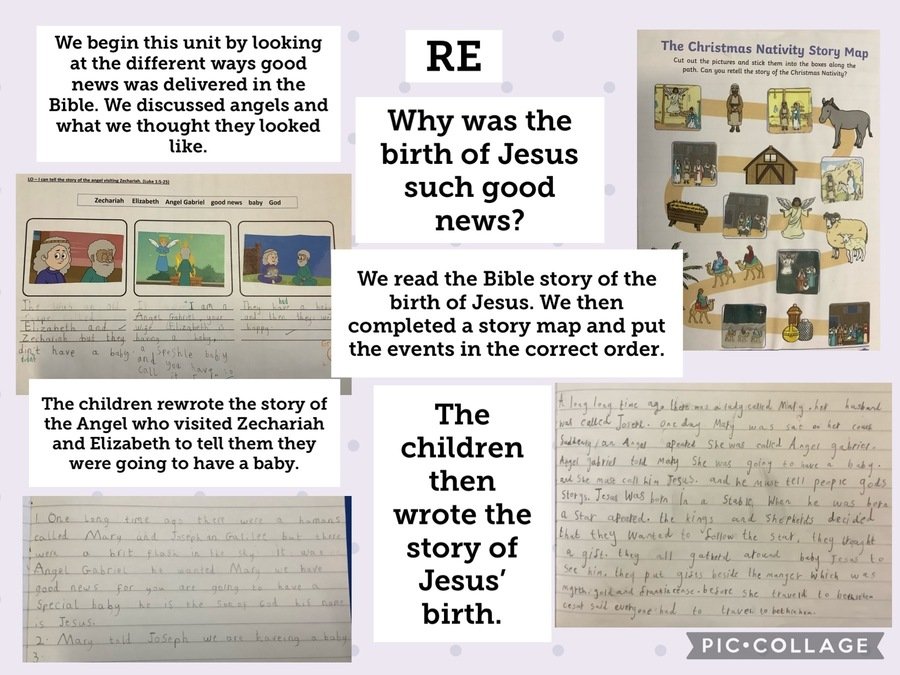 We begin this unit by looking
at the different ways good
news was delivered in the
Bible. We discussed angels and
what we thought they looked
like.
RE
Why was the
birth of Jesus
such good
news?
The Christmas Nativity Story Map
Cut out the pictures and stick them into the boxes along the
path. Can you retell the story of the Christmas Nativity?
LO – I can tell the story of the angel visiting Zechariah. (Luke 1:5-25)
Zechariah Elizabeth Angel Gabriel good news baby God
Elizabeth and
Zechariah but they
didn't have a baby.
"I am a
Angel Gabriel, your
wife Elizabeth is
having a baby,
a speshle baby
and you have
call it
They had a baby
and then they
happy.
We read the Bible story of the
birth of Jesus. We then
completed a story map and put
the events in the correct order.
The children rewrote the story of
the Angel who visited Zechariah
and Elizabeth to tell them they
were going to have a baby.
The
children
then
wrote the
story of
Jesus'
birth.
1. One long time ago there were a humans
called Mary and Joseph an Galilee but there
were a brit flash in the sky It was
Angel Gabriel he wanted Mary we have
good news for you are going to have a
special baby he is the son of God his name
is Jesus.
2. Mary told Joseph we are haveing a baby
3.
A long long time ago there was a lady called Mary, her husband
was called Joseph. One day Mary was sat on her couch
Suddenly, an Angel apeared She was called Angel gabriel.
Angel gabriel told Mary She was going to have a baby.
and She must call him Jesus. and he must tell people gods
storys. Jesus was born In a Stable. When he was born
a Star apeared. the kings and Shepherds decided
that they wanted to follow the star, they bought
a gift. they all gatherd around baby Jesus to
See him, they put gifts beside the manger which was
myrrh, gold and frankincense. before she traveld to bethlehem
said everyone had to travel to bethlehem.
PIC•COLLAGE